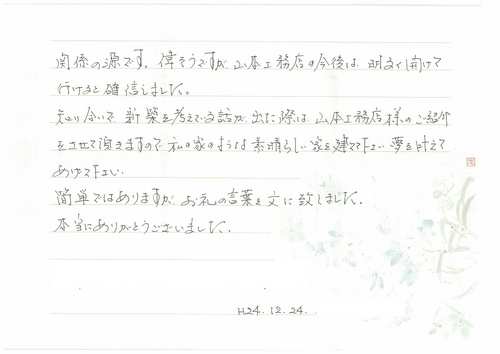 関係の源です。偉そうですが、山本工務店の今後は、明るく開けて
行けると確信しました。
知り合いで、新築を考えている話が出た際は、山本工務店様のご紹介
をさせて頂きますので、私の家のような素晴らしい家を建てて下さい。夢を叶えて
あげて下さい。
簡単ではありますが、お礼の言葉を文に致しました。
本当にありがとうございました。
H24.12.24.